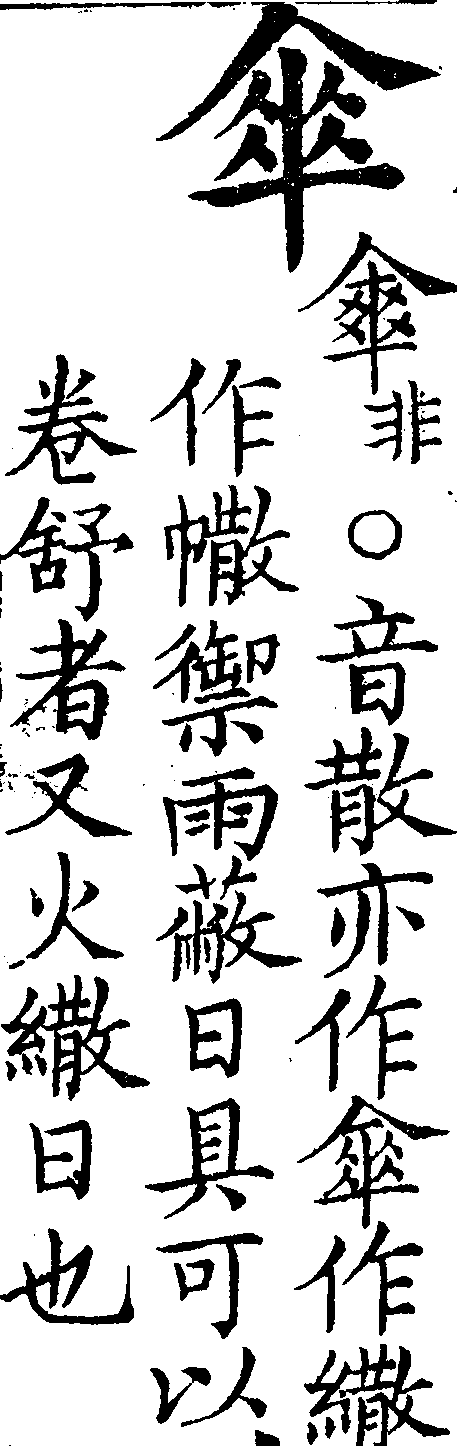 傘
非○音散亦作傘作繖
作禦雨蔽日具可以
卷舒者又火繖日也